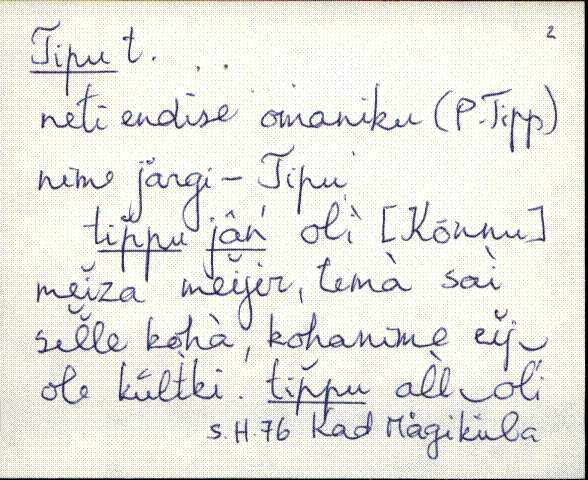 2
Tipu t. . .
neti endise omaniku (P. Tipp)
nime järgi – Tipu.
tip̆pu jân̆ olì [Kõnnu]
mĕiza mĕijer, temà saì
sel̆le kohà, kohanime eij
ole kül̆tki. tip̆pu al̀l olì
S.H. 76 Kad Mägiküla